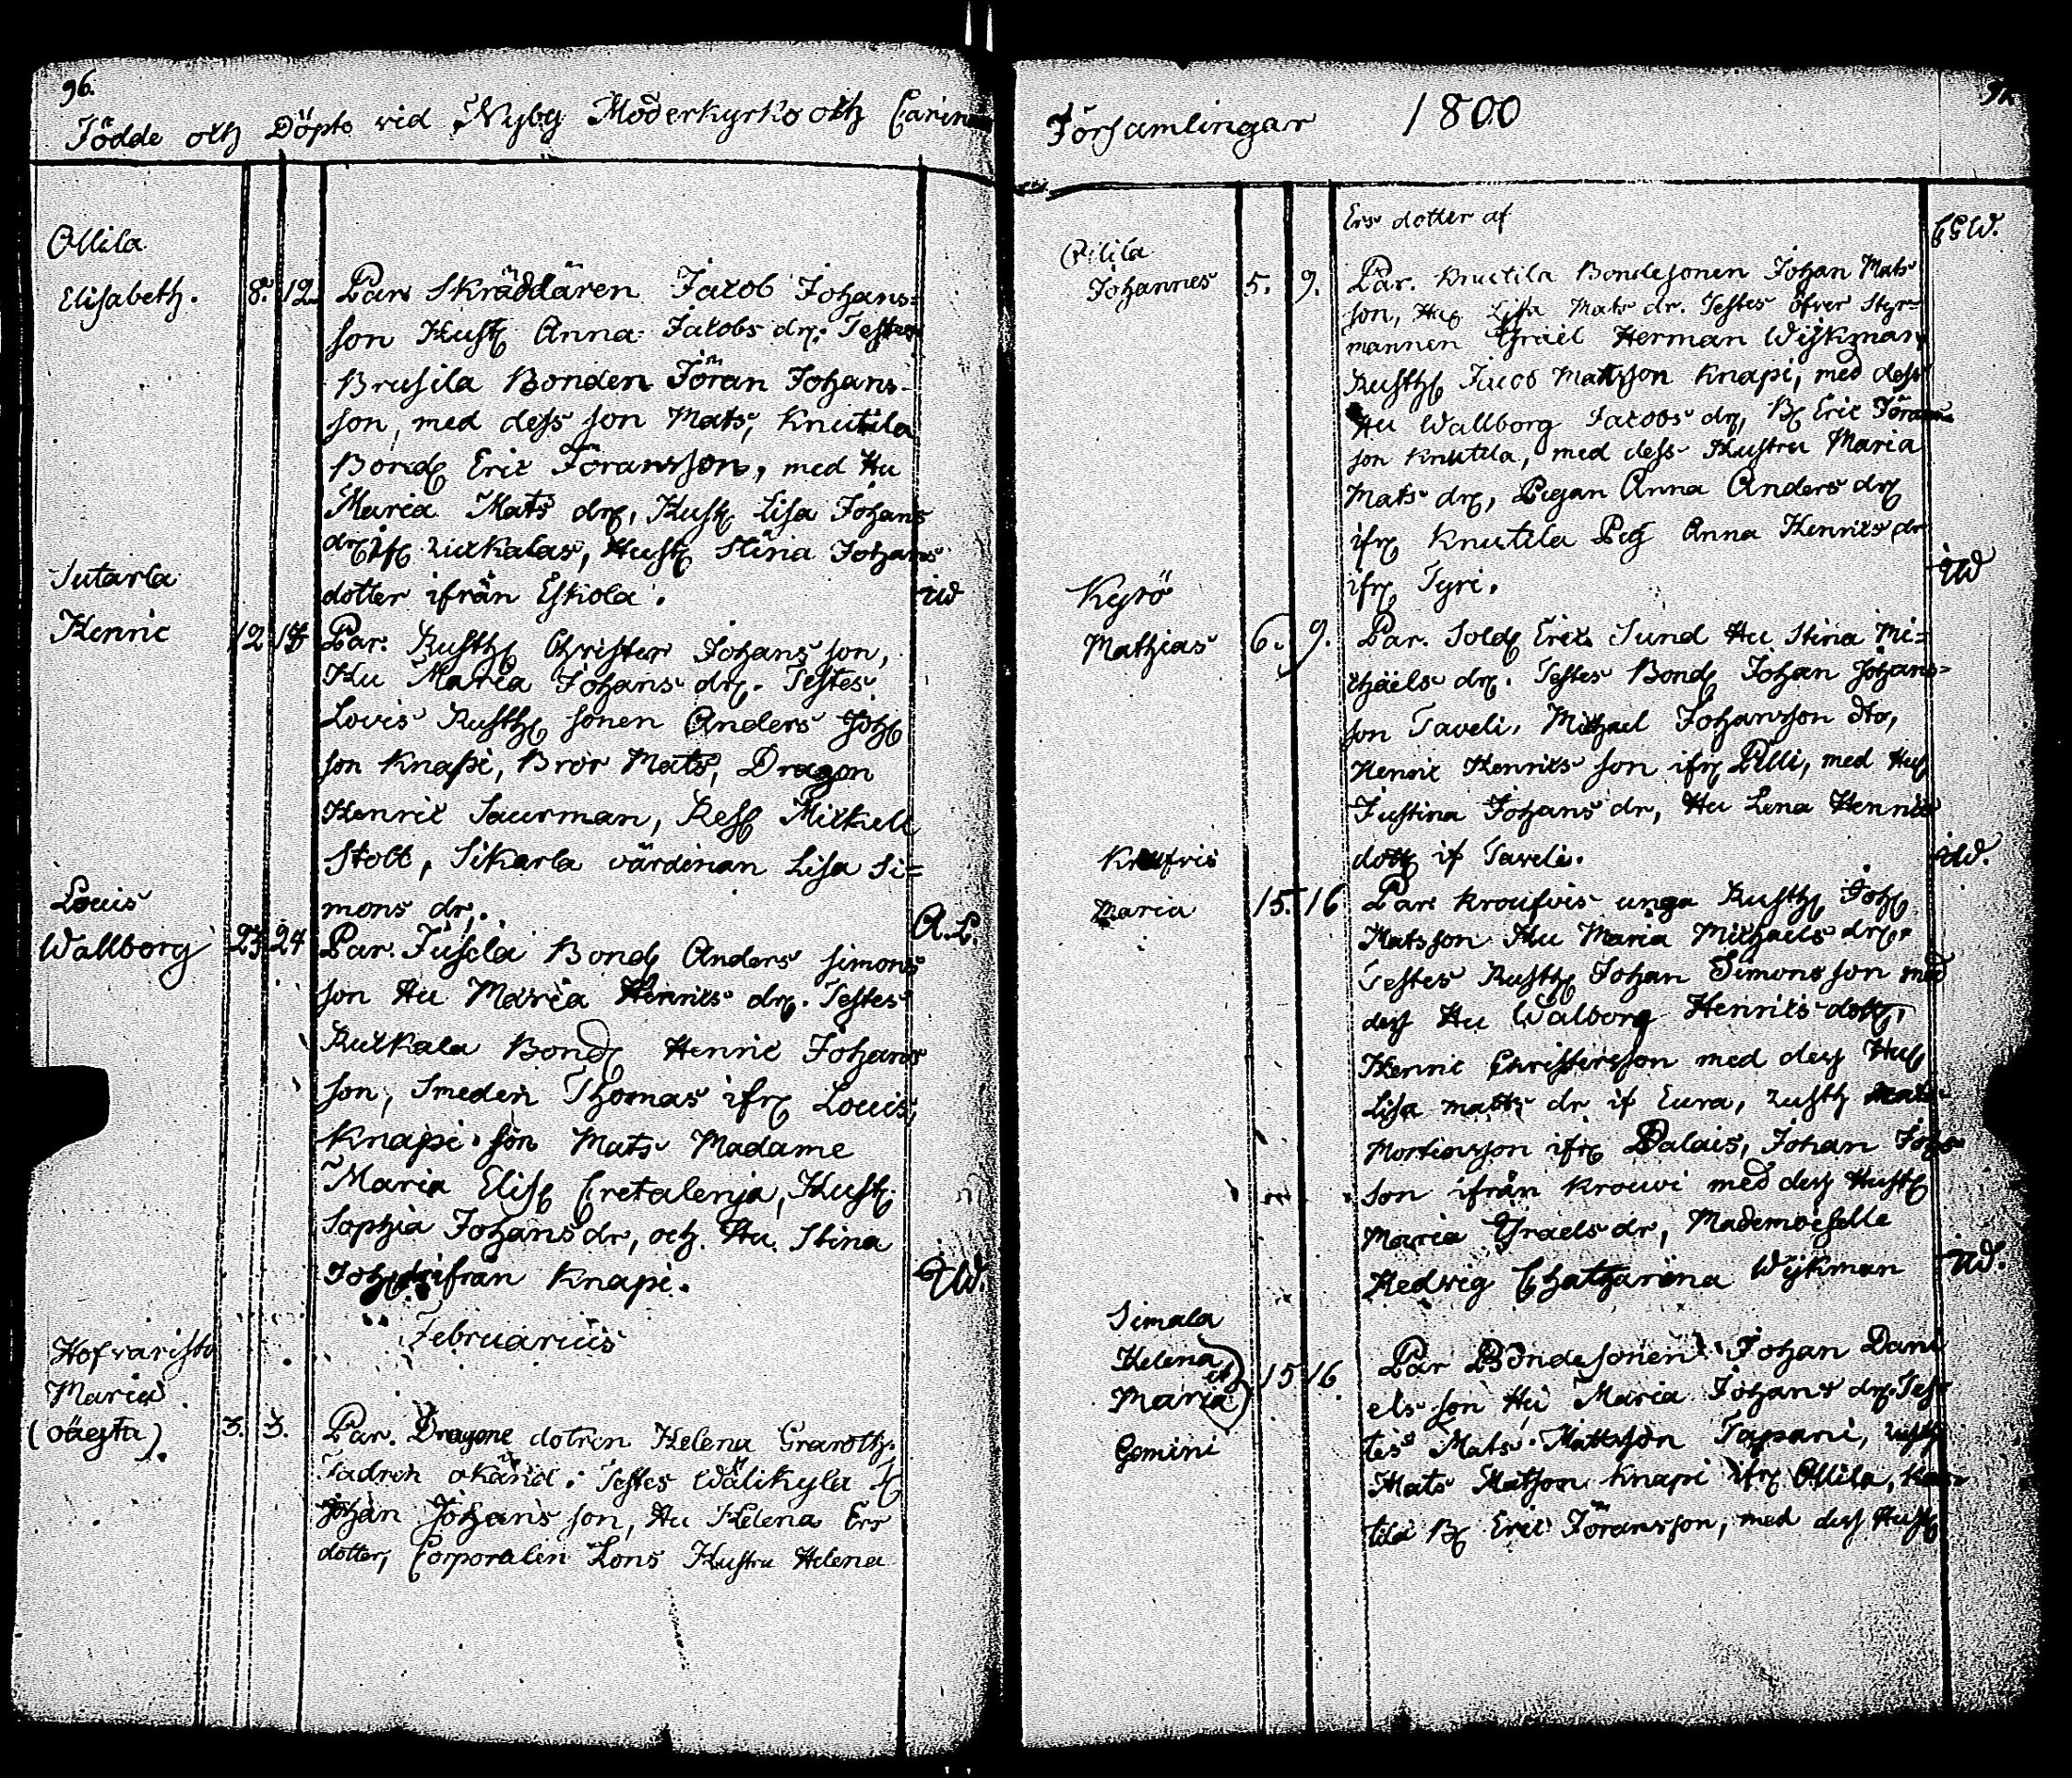 96.
Födde och Döpte vid Nyby Moderkyrko och
Ollila
Elisabeth. 8. 12. Par. Skräddären Jacob Johans=
son Hust Anna Jacobs dr. Testes
Brusila Bonden Jöran Johans-
son, med dess son Mats, Knutila
Bond Eric Joransson, med Hu
Maria Mats dr, Hust Lisa Johans
dr ifr Kukalas, Hust Stina Johans
dotter ifrån Eskola. id
Sutarla
Henric 12 Par. Rusth Christer Johans son,
Hu Maria Johans dr. Testes
Lovis Rusth sonen Anders Joh
son Knapi, Bror Mats, Dragon
Henric Saurman, Res Mickell
Stolt, Sikarla värdinan Lisa Si=
mons dr. A.L.
Louis
Wallborg 23 24 Par. Juscla Bond Anders Simons
son Hu Maria Henrics dr. Testes
Kukkala Bond Henric Johans
son, Smeden Thomas ifr Louis,
Knapi son Mats Madame
Maria Elis Cretalenja, Hust
Sophia Johans dr, och Hu Stina
Joh dr ifrån Knapi. id.
Februarius
Hofraristo
Maria
(oägta). 3. 3. Par. Dragone dotren Helena Graroth.
Fadren okänd. Testes Wälikyla
Johan Johans son, Hu Helena Ers
dotter, Corporalen Lons Hustru Helena
Församlingar 1800
Ers dotter af
Ollila
Johannes 5. 9. Par. Knutila Bondesonen Johan Mats
son, Hu Lisa Mats dr. Testes öfver Styr-
mannen Israel Herman Wijkman,
Rusth Jacob Mattsson Knapi, med dess
Hu Wallborg Jacobs dr, B Eric Jörans
son Knutila, med dess Hustru Maria
Mats dr, Pigan Anna Anders dr
ifr Knutila Pig Anna Henrics dr
ifr Tyri. id
Kyrö
Mathias 6. 9. Par. Sold Eric Sund Hu Stina Mi=
chaels dr. Testes Bond Johan Johans=
son Taveli, Michael Johansson dto,
Henric Henrics son ifr Pilli, med Hu
Justina Johans dr, Hu Lena Henrics
dott if Taveli. id.
Maria 15. 16 Par Kroufvis unga Rusth Joh
Matsson Hu Maria Michaels dr.
Testes Rusth Johan Simonsson med
dess Hu Walborg Henrics dott,
Henric Christersson med dess Hu
Lisa matts dr if Eura, Rusth Mats
Mortensson ifr Palais, Johan Johs
son ifrån Krouvi med dess Hust
Maria Israels dr, Mademoiselle
Hedvig Chatharina Wijkman id.
Simala
Helena
et
Maria 15 16. Par Bondesonen Johan Dani
els son Hu Maria Johans dr. Tes
Gemini tes Mats Mattsson Tapani, Rusth
Mats Matsson Knapi ifr Ollila,
tila B Eric Joransson, med dess Hust